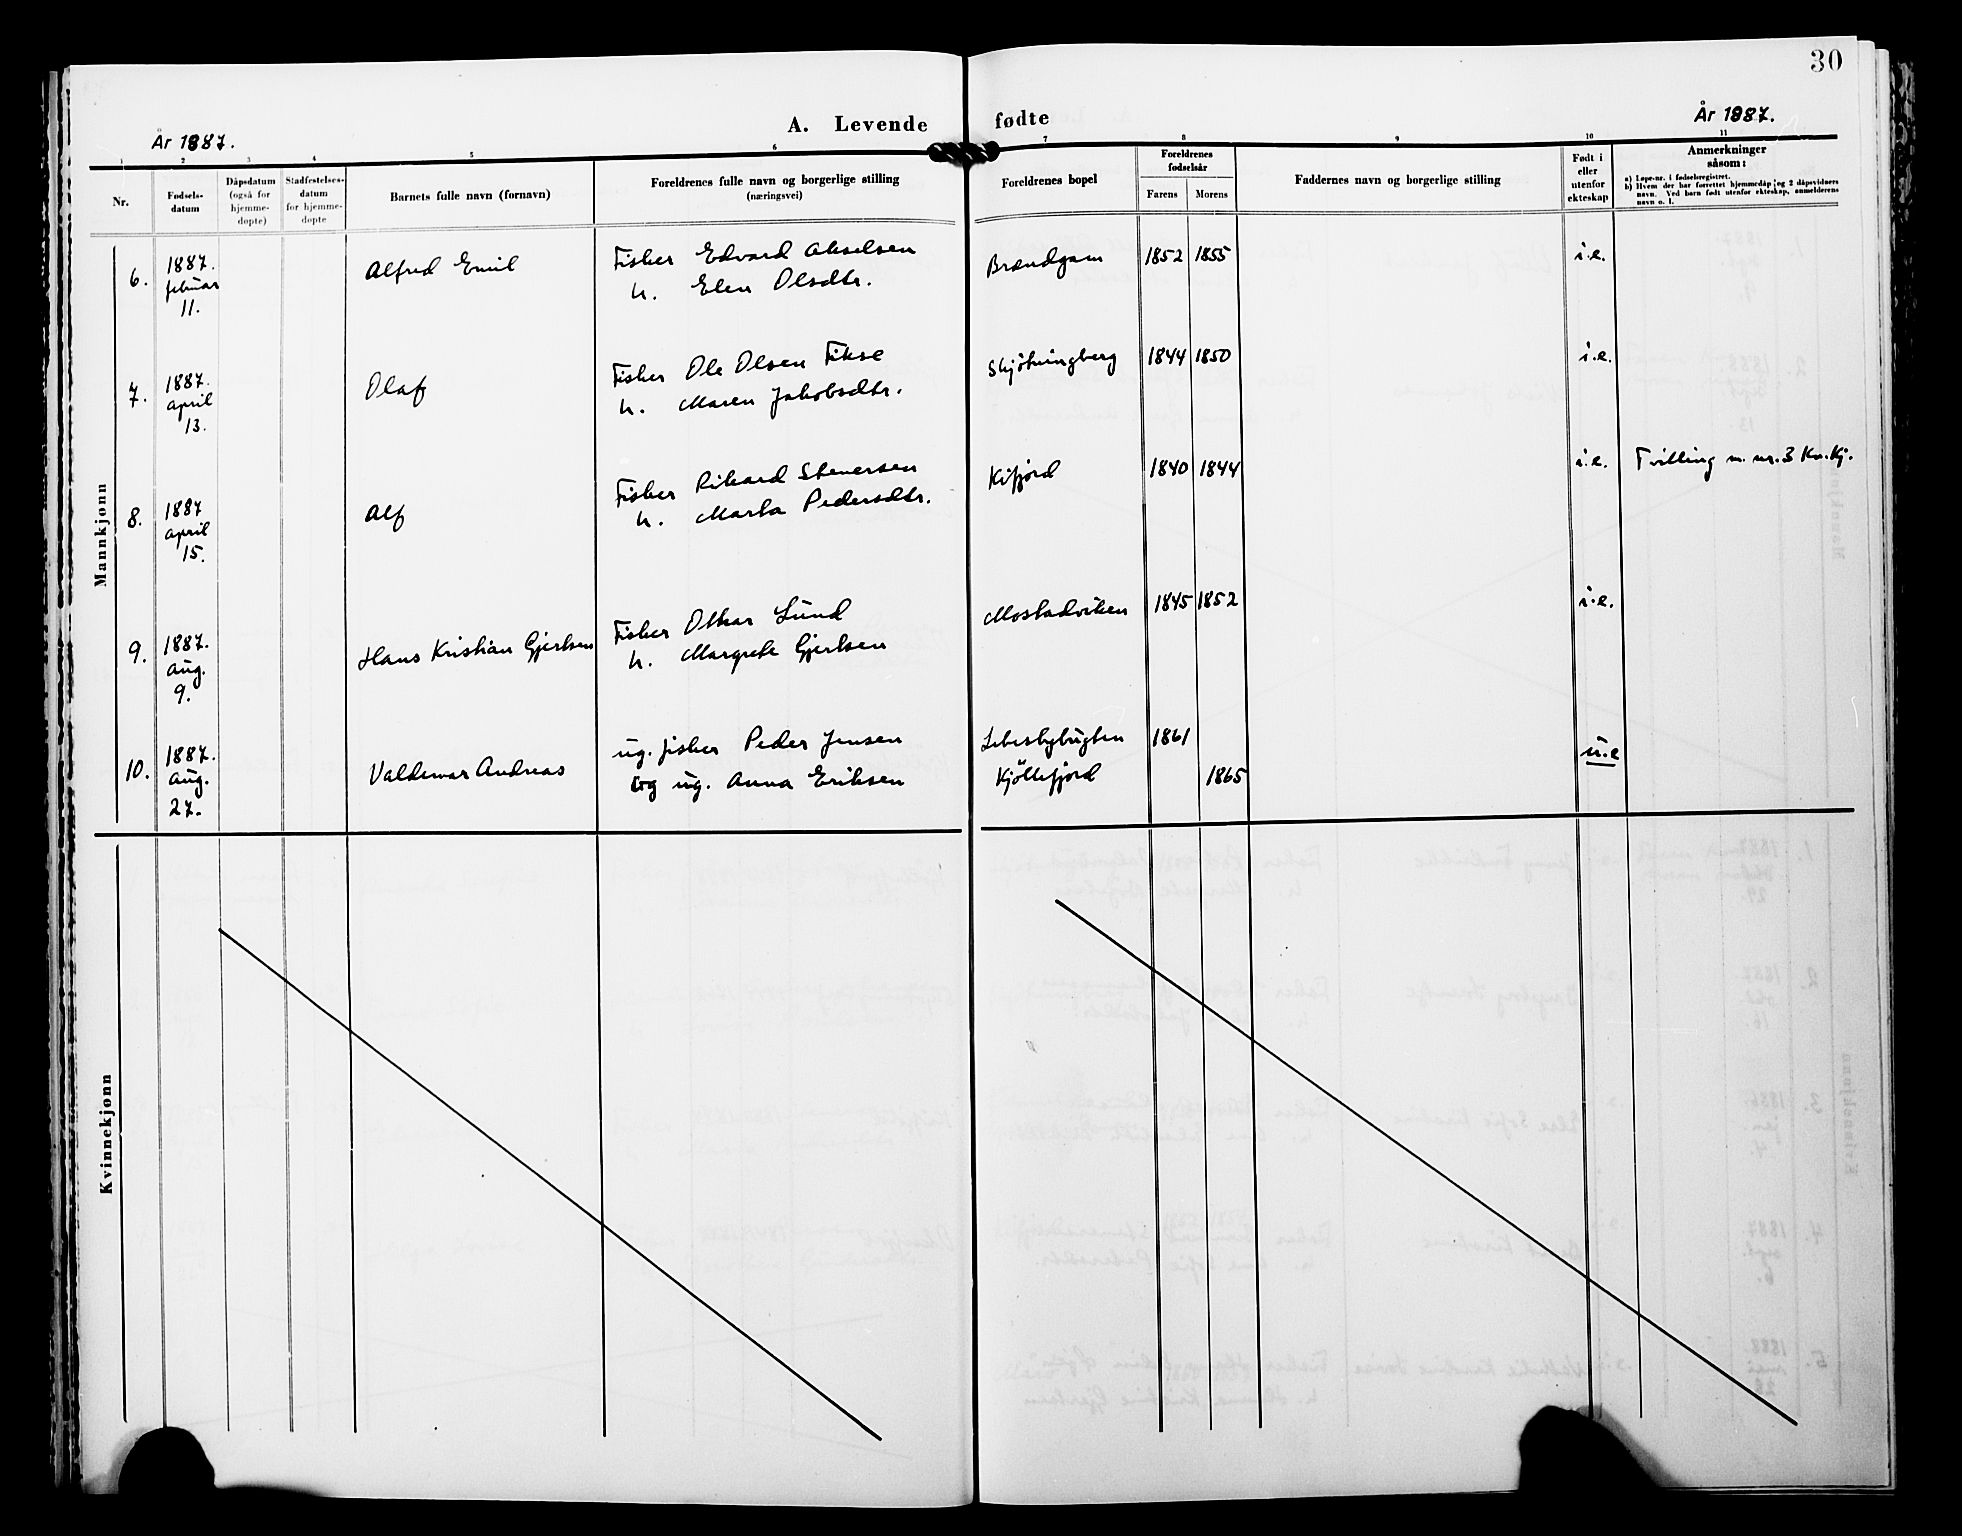 30
År 1887.
A. Levende fødte
År 1887.
1 2 3 4 5 6 7 8 9 10 11
Nr.
Fødsels-
datum
Dåpsdatum
(også for
hjemme-
døpte)
Stadfestelses-
datum
for hjemme-
døpte
Barnets fulle navn (fornavn)
Foreldrenes fulle navn og borgerlige stilling
(næringsvei)
Foreldrenes bopel
Foreldrenes
fødselsår
Farens Morens
Faddernes navn og borgerlige stilling
Født i
eller
utenfor
ekteskap
Anmerkninger
såsom:
a) Løpe-nr. i fødselsregistret.
b) Hvem der har forrettet hjemmedåp og 2 dåpsvidners
navn. Ved barn født utenfor ekteskap, anmelderens
navn o. l.
Mannkjønn
6. 1887. februar 11. Alfred Emil
Fisker Edvard Akselsen
h. Elen Olsdtr.
Brændgam 1852 1855 i.e.
7. 1887. april 13. Olaf
Fisker Ole Olsen Fikse
h. Maren Jakobsdtr.
Skjøtningberg 1844 1850 i.e.
8. 1887 april 15. Alf
Fisker Rikard Stenersen
h. Marta Pedersdtr.
Kifjord 1840 1844 i.e. Tvilling m. nr. 3 Kv.kj.
9. 1887. aug. 9. Hans Kristian Gjertsen
Fisker Otkar Lund
h. Margrete Gjertsen
Mostadviken 1845 1852 i.e.
10. 1887. aug. 27. Valdemar Andreas
ug. fisker Peder Jensen
og ug. Anna Eriksen
Lebesbybugten 1861 u.e
Kjøllefjord 1865
Kvinnekjønn